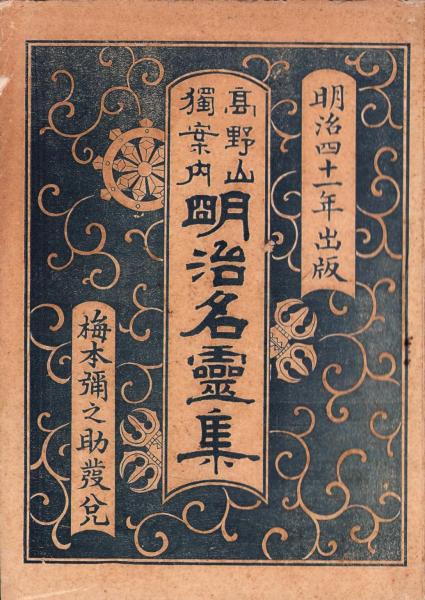 明治四十一年出版
高野山
獨案内
明治名靈集
梅本彌之助發兌